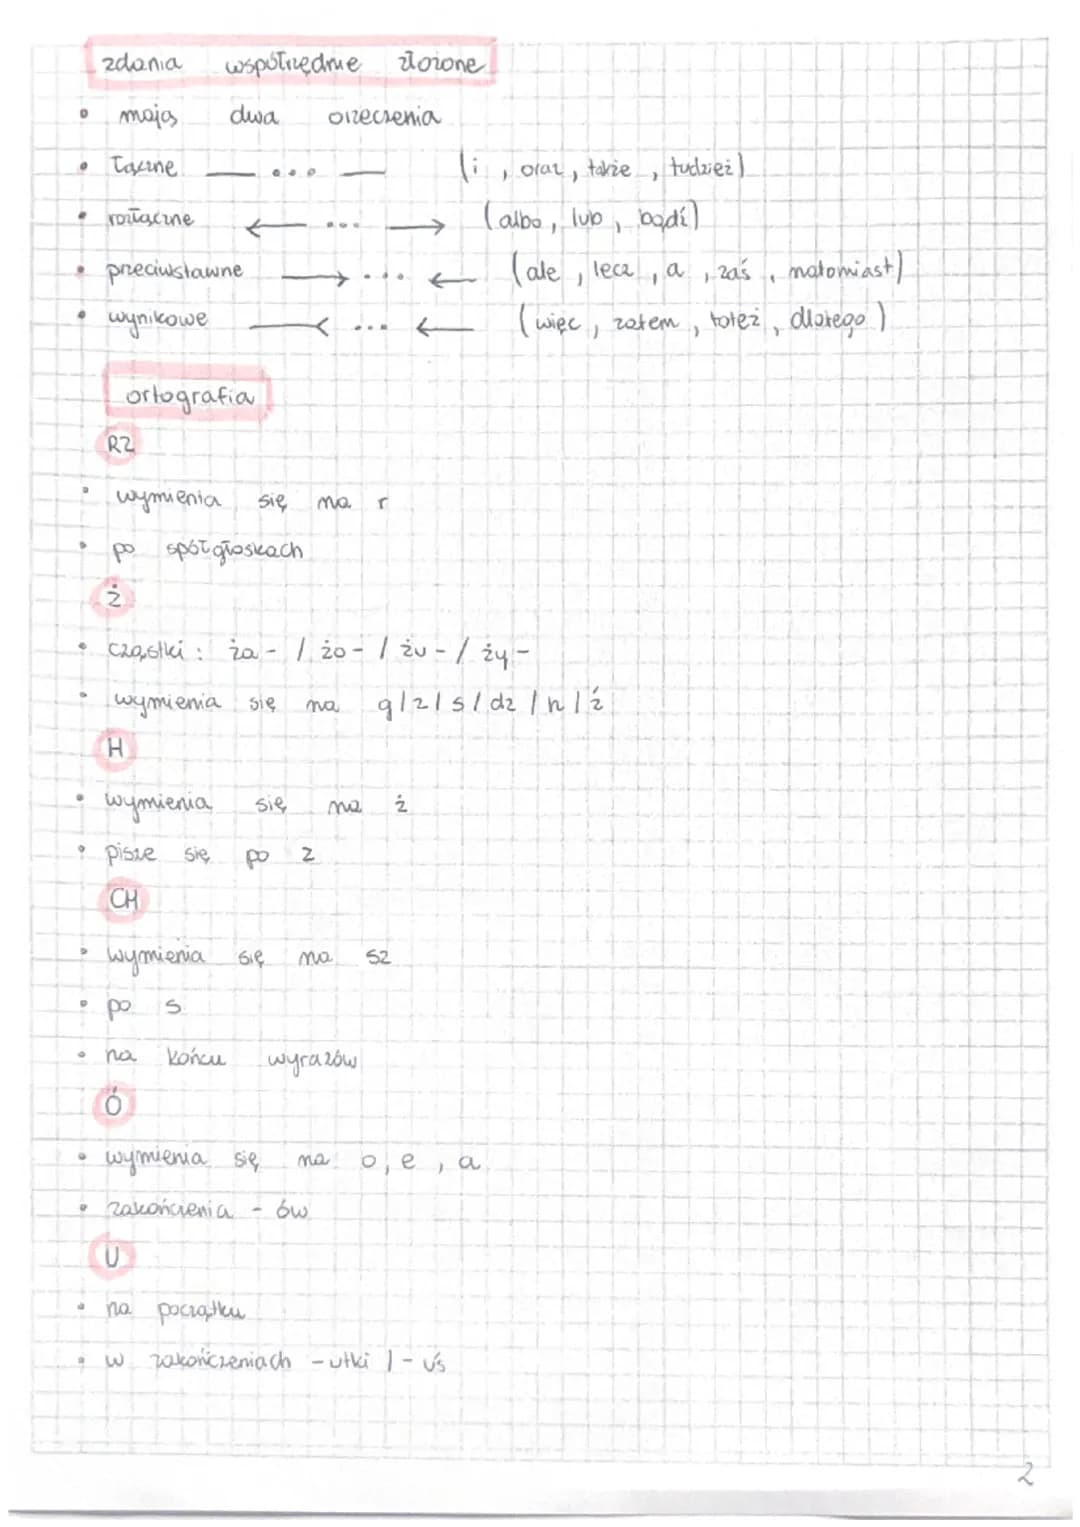 zdania współrzędnie złożone
• mają dwa orzeczenia
• łączne —— ... —— (i, oraz, także, tudzież)
• rozłączne ← ... → (albo, lub, bądź)
• przeciwstawne → ... ← (ale, lecz, a, zaś, natomiast)
• wynikowe ——< ... ← (więc, zatem, toteż, dlatego)
ortografia
RZ
• wymienia się na r
• po spółgłoskach
Ż
• cząstki: ża- / żo- / żu- / ży-
• wymienia się na g/z/s/dz/h/ź
H
• wymienia się na ż
• pisze się po z
CH
• wymienia się na sz
• po s
• na końcu wyrazów
Ó
• wymienia się na o, e, a
• zakończenia - ów
U
• na początku
• w zakończeniach -utki / -uś
2